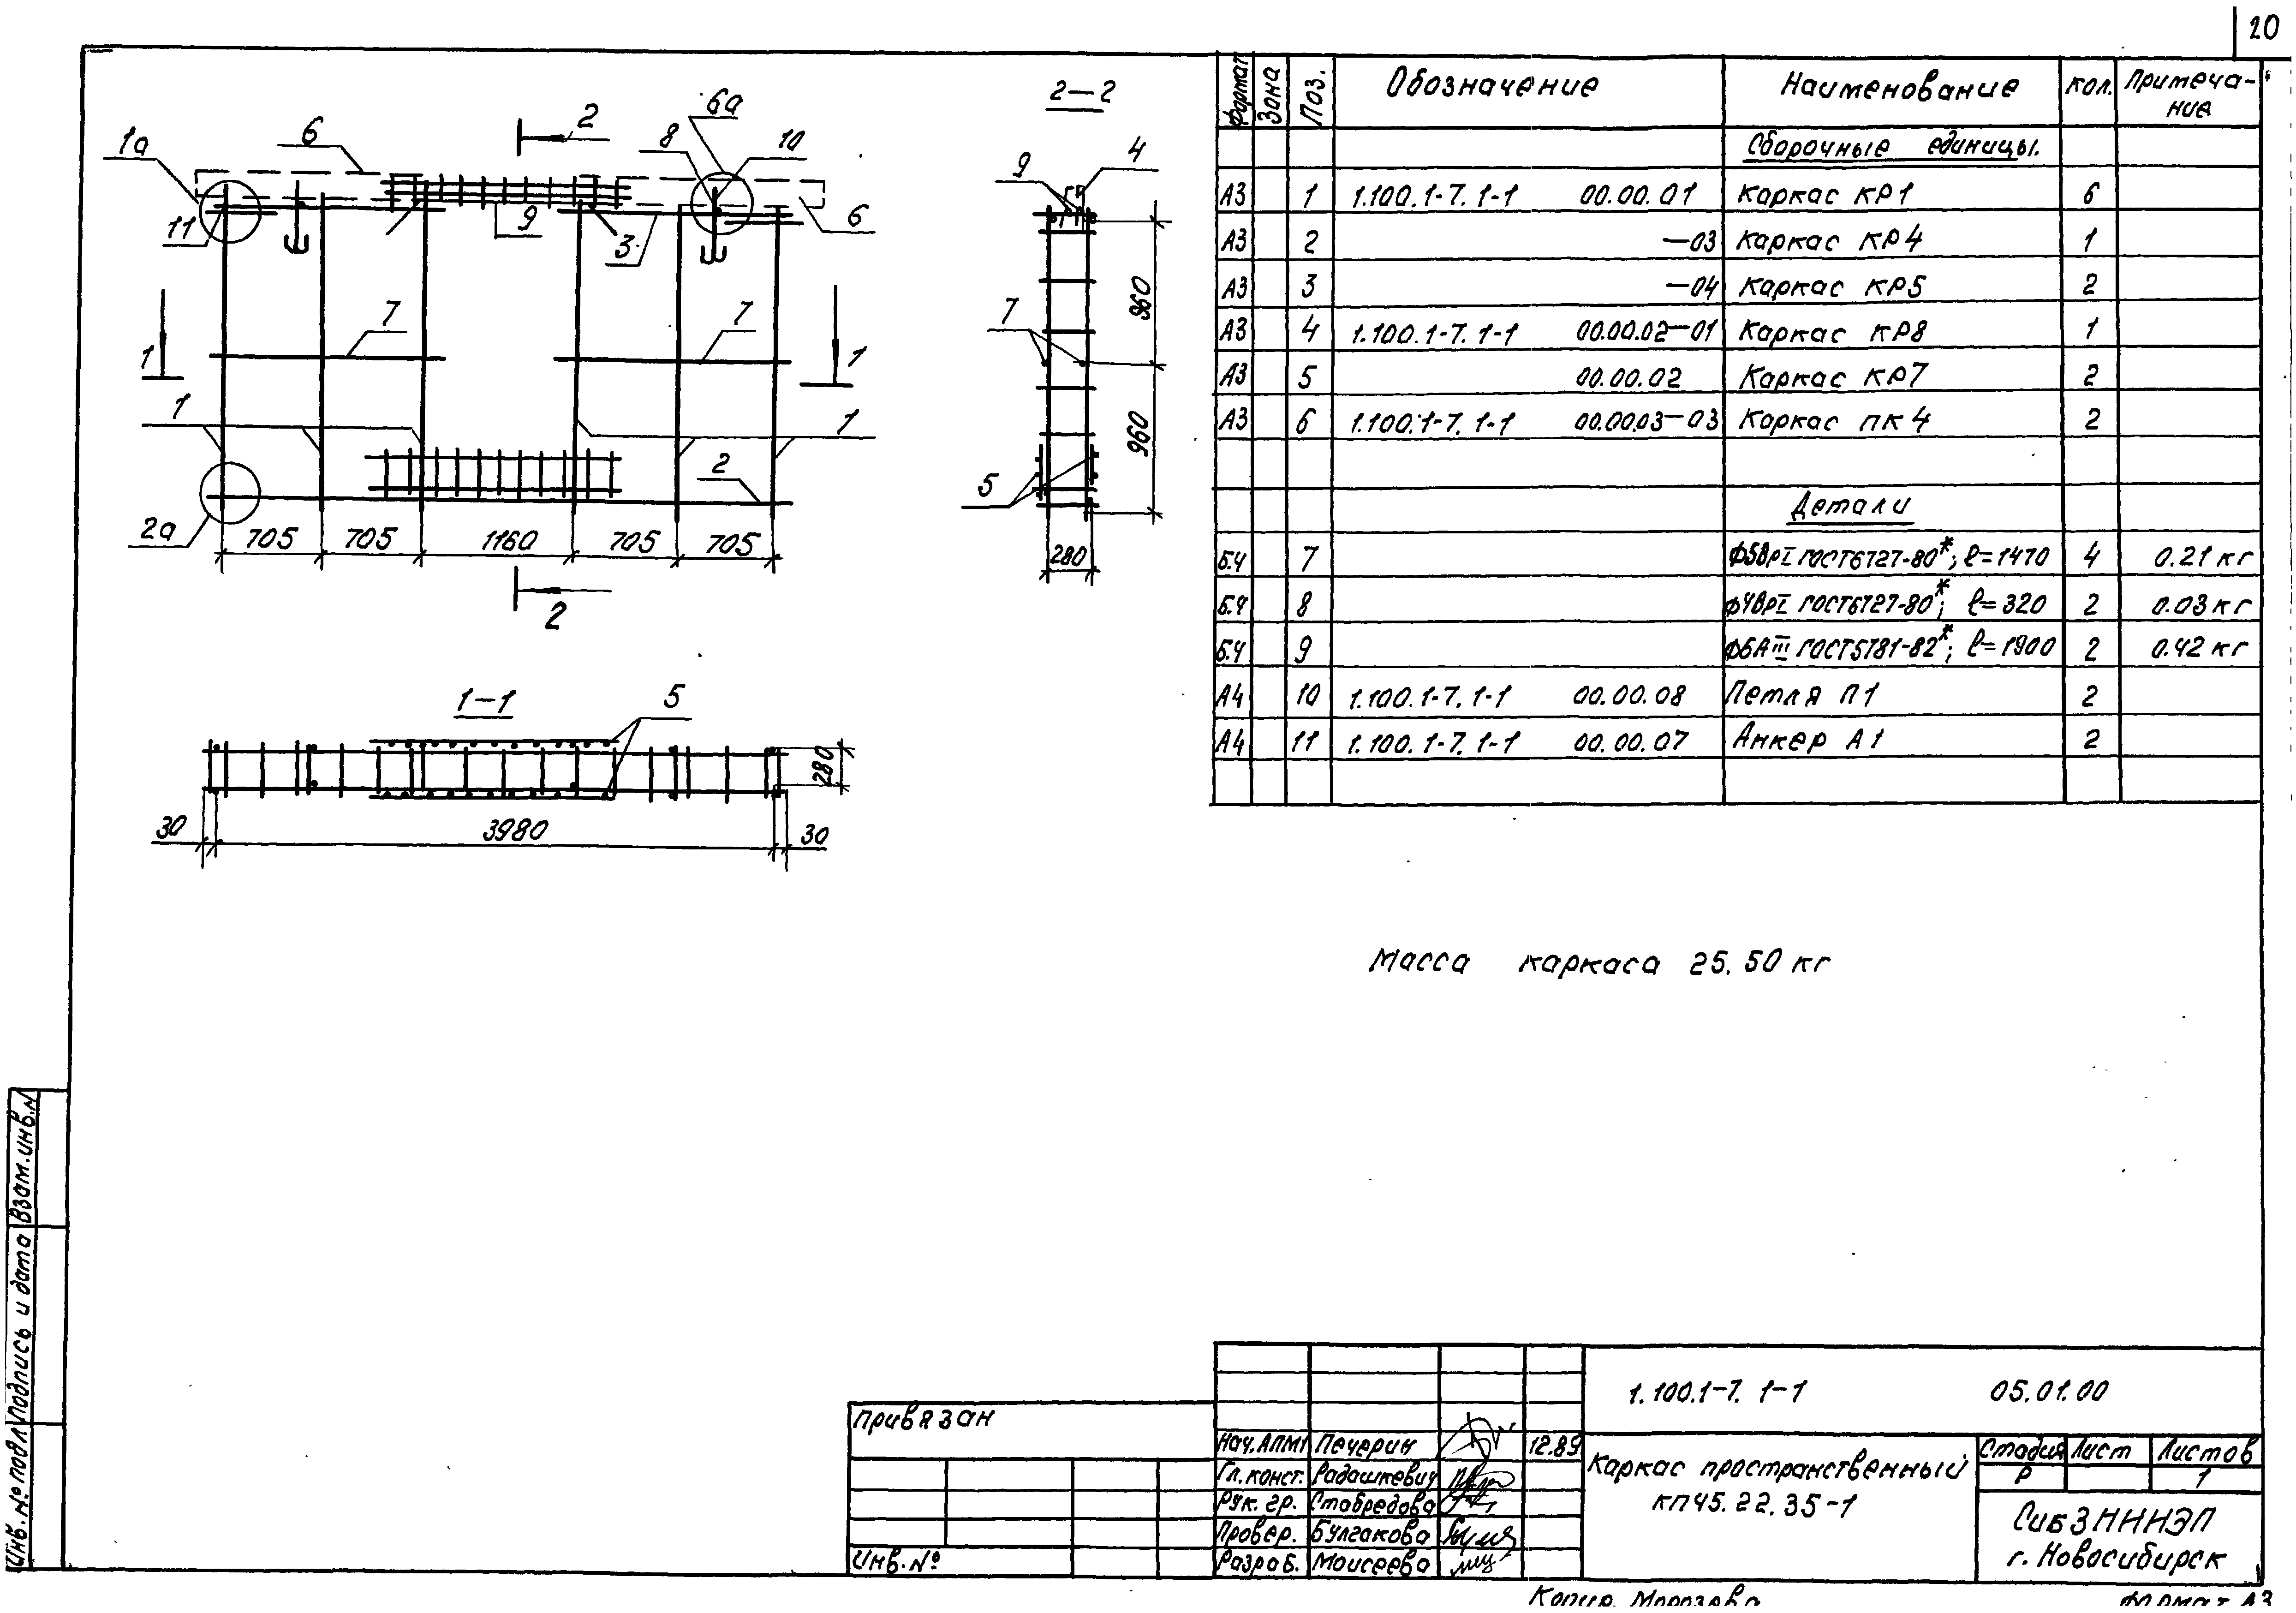 20
2
6а
2—2
6
8
10
1а
9
4
11
9
3
6
960
7
7
7
1
1
1
1
960
2
5
2а
705
705
1160
705
705
280
2
1—1
5
280
30
3980
30
Формат
Зона
Поз.
Обозначение
Наименование
Кол.
Примечание
Сборочные единицы.
А3 1 1.100.1-7. 1-1 00.00.01 Каркас КР1 6
А3 2 —03 Каркас КР4 1
А3 3 —04 Каркас КР5 2
А3 4 1.100.1-7. 1-1 00.00.02—01 Каркас КР8 1
А3 5 00.00.02 Каркас КР7 2
А3 6 1.100.1-7. 1-1 00.00.03—03 Каркас ПК4 2
Детали
Б.Ч 7 Ф5ВрI ГОСТ6727-80*; ℓ=1470 4 0.21 кг
Б.Ч 8 Ф4ВрI ГОСТ6727-80*; ℓ=320 2 0.03 кг
Б.Ч 9 Ф6АIII ГОСТ5781-82*; ℓ=1900 2 0.42 кг
А4 10 1.100.1-7. 1-1 00.00.08 Петля П1 2
А4 11 1.100.1-7. 1-1 00.00.07 Анкер А1 2
Масса каркаса 25.50 кг
Инв. № подл. Подпись и дата Взам. инв. №
Привязан
Инв. №
Нач. АПМ1 Печерин 12.89
Гл. конст. Радашкевич
Рук. гр. Стабредова
Провер. Булгакова
Разраб. Моисеева
1.100.1-7. 1-1 05.01.00
Каркас пространственный
КП45.22.35-1
Стадия Лист Листов
Р 1
СибЗНИИЭП
г. Новосибирск
Копир. Морозова
Формат А3